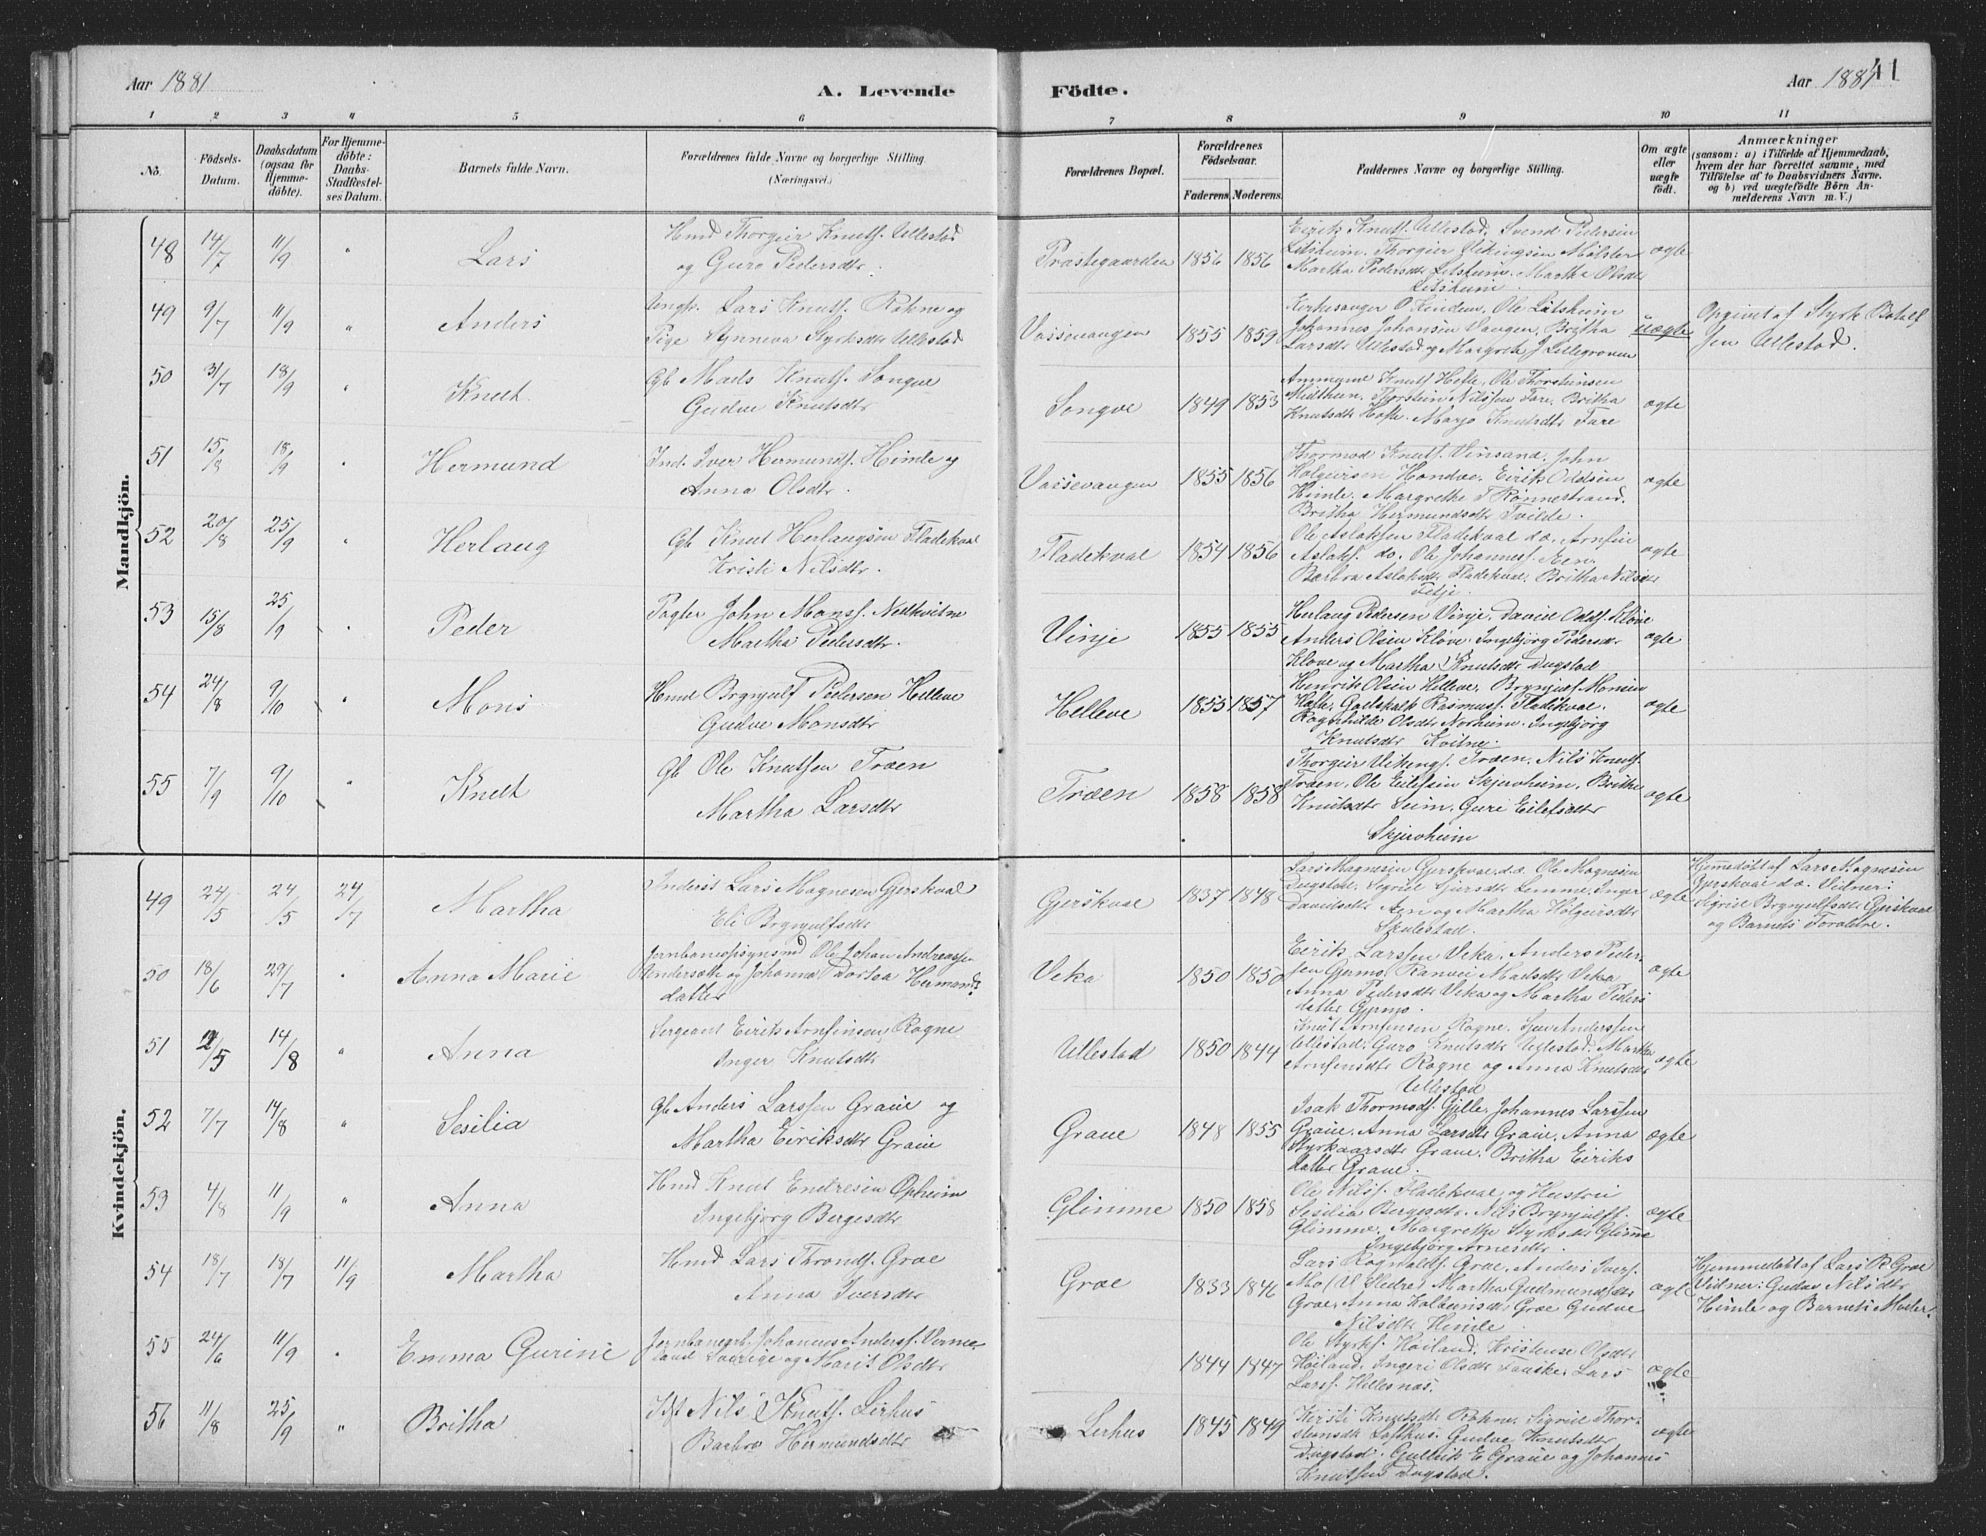 Aar 1881
A. Levende
Födte.
Aar 1881
41
1 2 3 4 5 6 7 8 9 10 11
No.
Födsels-
Datum.
Daabsdatum
(ogsaa for
Hjemme-
döbte).
For Hjemme-
döbte:
Daabs-
Stadfæstel-
ses Datum.
Barnets fulde Navn.
Forældrenes fulde Navne og borgerlige Stilling.
(Næringsvei.)
Forældrenes Bopæl.
Forældrenes
Födselsaar.
Faderens
Moderens.
Faddernes Navne og borgerlige Stilling.
Om ægte
eller
uægte
födt.
Anmærkninger
(saasom: a) i Tilfælde af Hjemmedaab,
hvem der har forrettet samme, med
Tilföielse af to Daabsvidners Navne.
og b) ved uægtefödte Börn An-
melderens Navn m. V.)
Mandkjön.
48 14/7 11/9 " Lars
Hmd Thorgier Knuts. Ullestad
og Guro Pedersdtr.
Præstegaarden 1856 1856
Eirik Knuts. Ullestad, Svend Pedersen
Litsheim. Thorgier Vikingsen Mölster
Martha Pedersdtr Litsheim. Martha Olsdtr
Litsheim.
ægte
49 9/7 11/9 " Anders
Ungk. Lars Knuts. Rokne og
Pige Synneva Styrksdtr Ullestad
Vossevangen 1855 1859
Kirkesanger O. Kindem, Ole Litsheim
Johannes Johansen Vangen, Britha
Larsdtr Ullestad og Margrete J. Lillegraven
uægte
Opgivet af Styrk Botolf
sen Ullestad.
50 31/7 18/9 " Knut
Gb Mads Knuts. Songve
Gudve Knutsdtr
Songve 1849 1853
Ammund Knuts. Hefte, Ole Thorsteinsen
Midthun, Thorstein Nilssen Fare, Britha
Knutsdtr Hefte. Marjo Knutsdtr Fare
ægte
51 15/8 18/9 " Hermund
Ind. Iver Hermunds. Himle og
Anna Olsdtr.
Vossevangen 1855 1856
Thormod Knuts. Vinsand, John
Holgersen Hondve, Eirik Oddsen
Himle, Margrethe Rönnestrand,
Britha Hermundsdtr Tvilde.
ægte
52 20/8 25/9 " Herlaug
Gb Knut Herlaugsen Fladekval
Kristi Nilsdtr.
Fladekval 1854 1856
Ole Aslaksen Fladekval d.æ. Arnfin
Aslaks. do. Ole Johannes. Æen,
Barbra Aslaksdtr Fladekval, Britha Nilsdtr
ægte
53 15/8 25/9 " Peder
John Mons. Nedkvitne
Martha Pedersdtr.
Vinje 1855 1855
Herlaug Pedersen Vinje, David Odds. Klöve
Anders Olsen Klöve, Ingebjörg Pedersdtr
Klöve og Martha Knutsdtr Dugstad
ægte
54 24/8 9/10 " Mons
Hmd Brynjulf Pedersen Helleve
Gudve Monsdtr
Helleve 1855 1857
Henrik Olsen Helleve, Brynjulf Monsen
Hefte, Godskalk Rasmuss. Fladekval.
Ragnhilde Olsdtr Norheim. Ingebjörg
Knutsdtr Kvitne.
ægte
55 7/9 9/10 " Knut
Gb Ole Knutsen Træen
Martha Larsdtr
Træen 1858 1858
Thorgier Vikings. Træen, Nils Knuts.
Træen, Ole Eilefsen Skjerveheim, Britha
Knutsdtr Seim, Guri Eilefsdtr
Skjerveheim
ægte
Kvindekjön.
49 24/5 24/5 24/7 Martha
Inderst Lars Magnesen Gjerskval
Eli Brynjulfsdtr
Gjerskval 1837 1848
Lars Magnesen Gjerskval d.æ. Ole Magnesen
Dugstad, Sigrid Sjursdtr Lemme, Inger
Davidsdtr Æen og Martha Holgersdtr
Skulestad.
ægte
Hjemmedöbt af Lars Magnesen
Gjerskval d.æ. Vidner:
Sigrid Brynjulfsdtr Gjerskval
og Barnets Forældre.
50 18/6 29/7 " Anna Marie
Jernbaneopsynsmd Ole Johan Andreassen
og Johanna Dortea Hermans
datter
Veka 1850 1850
Eirik Larssen Veka, Anders Peder
sen Gjerme, Ranvei Madsdtr Veka
Anna Pedersdtr Veka og Martha Peders
datter
ægte
51 2/5 14/8 " Anna
Sergeant Eirik Arnfinsen Rogne
Inger Knutsdtr
Ullestad 1850 1844
Knut Arnfinsen Rogne, Sjur Anderssen
Ullestad, Guro Knutsdtr Ullestad, Martha
Arnfinsdtr Rogne og Anna Knutsdtr
Ullestad
ægte
52 7/7 14/8 " Sesilia
Gb Anders Larssen Graue og
Martha Eiriksdtr Graue
Graue 1848 1855
Isak Thormods. Gille, Johannes Larssen
Graue, Anna Larsdtr Graue, Anna
Styrkaarsdtr Graue. Britha Eiriks
datter Graue.
ægte
53 4/8 11/9 " Anna
Hmd Knut Endresen Opheim
Ingebjörg Bergesdtr
Glimme 1850 1858
Ole Nils. Fladekval og Hustru
Sesilia Bergesdtr. Nils Brynjulfs.
Glimme, Margrethe Styrksdtr Glimme
Ingebjörg Arnesdtr.
ægte
54 18/7 18/7 11/9 Martha
Hmd Lars Thronds. Groe
Anna Iversdtr
Groe 1833 1846
Lars Rognalds. Groe, Anders Ivers.
Mo, Martha Gudmundsdtr
Groe, Anna Kolbeinsdtr Groe Gudve
Nilsdtr Himle
ægte
Hjemmedöbt af Lars R. Groe
Vidner: Gudve Nilsdtr
Himle og Barnets Moder.
55 24/6 11/9 " Emma Gurine
Jernbanearb. Johannes Anders. Verme
land Sverige og Marit Olsdtr
1844 1847
Ole Styrks. Höiland, Kristense Olsdtr
Höiland, Ingeri Olsdtr Fauske, Lars
Lars. Hellesnæs.
ægte
56 11/8 25/9 " Britha
Nils Knuts. Lirhus
Barbra Hermundsdtr
Lirhus 1845 1849
Kirsti Knutsdtr Rokne, Sigrid Thor-
steinsdtr Lofthus. Gudve Knutsdtr
Dugstad. Gulleik E. Graue og Johannes
Knutsen Dugstad.
ægte